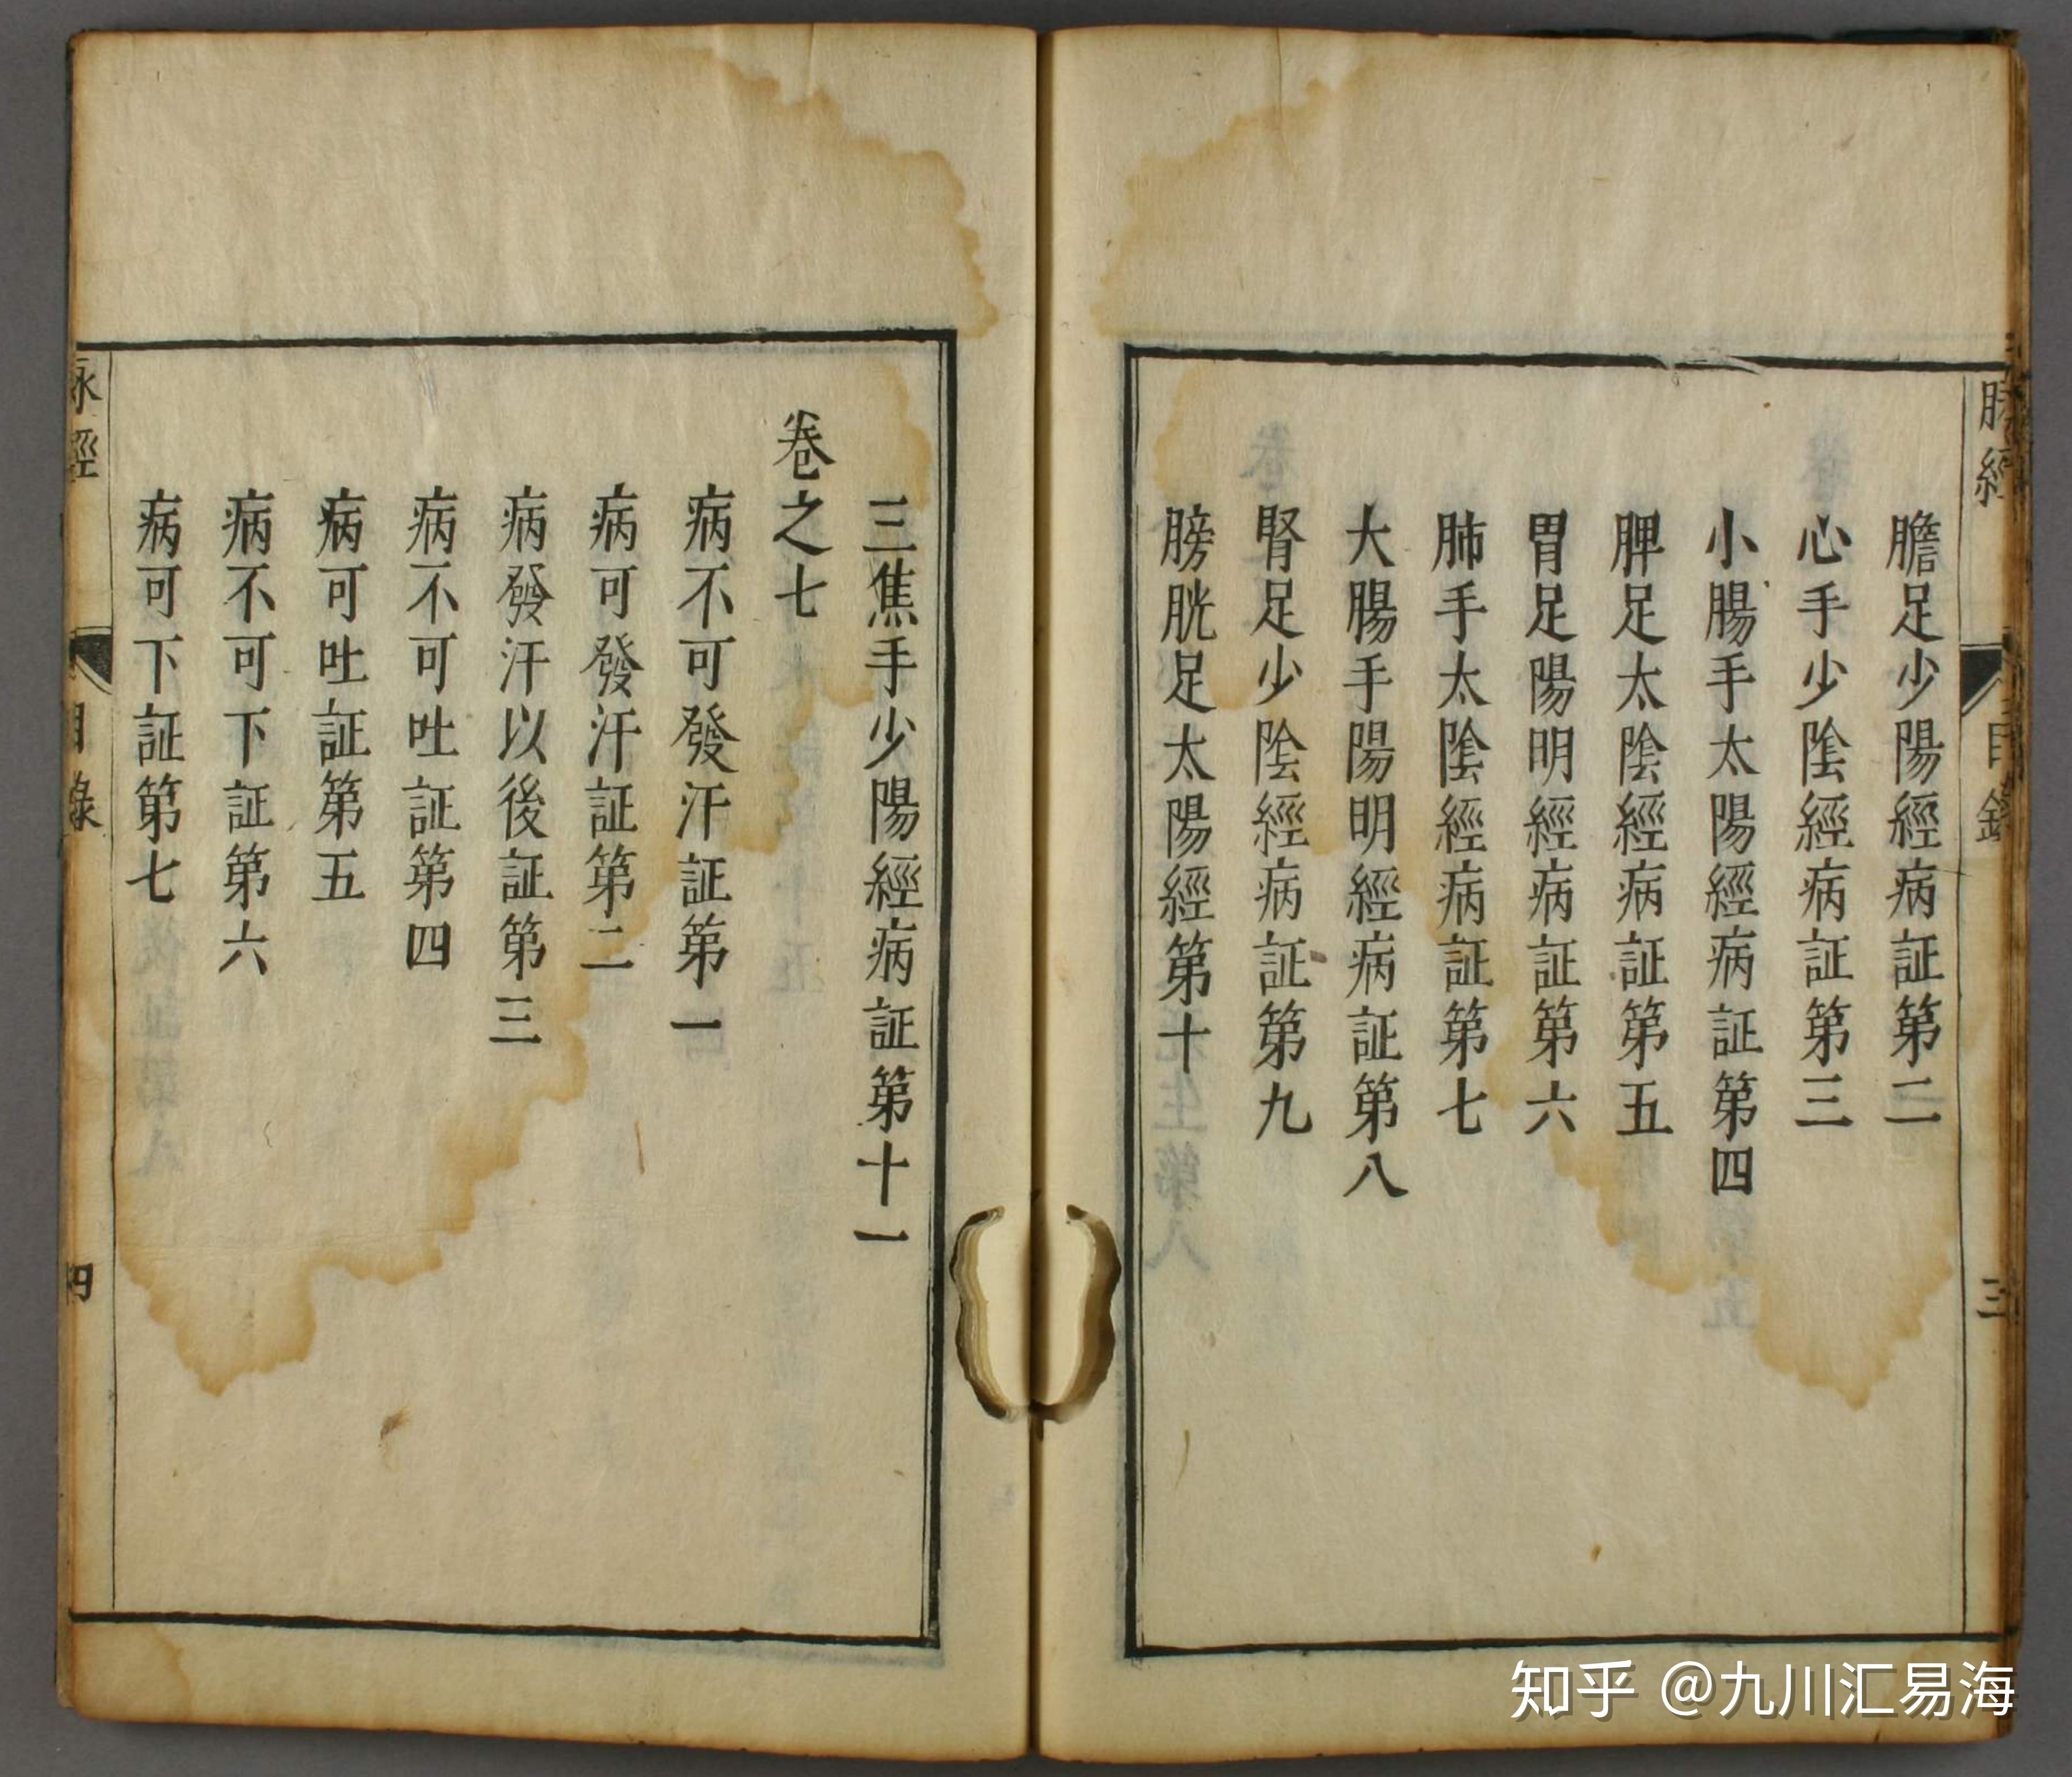 脉經
目錄
三
膽足少陽經病証第二
心手少陰經病証第三
小腸手太陽經病証第四
脾足太陰經病証第五
胃足陽明經病証第六
肺手太陰經病証第七
大腸手陽明經病証第八
腎足少陰經病証第九
膀胱足太陽經第十
三焦手少陽經病証第十一
卷之七
病不可發汗証第一
病可發汗証第二
病發汗以後証第三
病不可吐証第四
病可吐証第五
病不可下証第六
病可下証第七
脉經
目錄
四
知乎 @九川汇易海